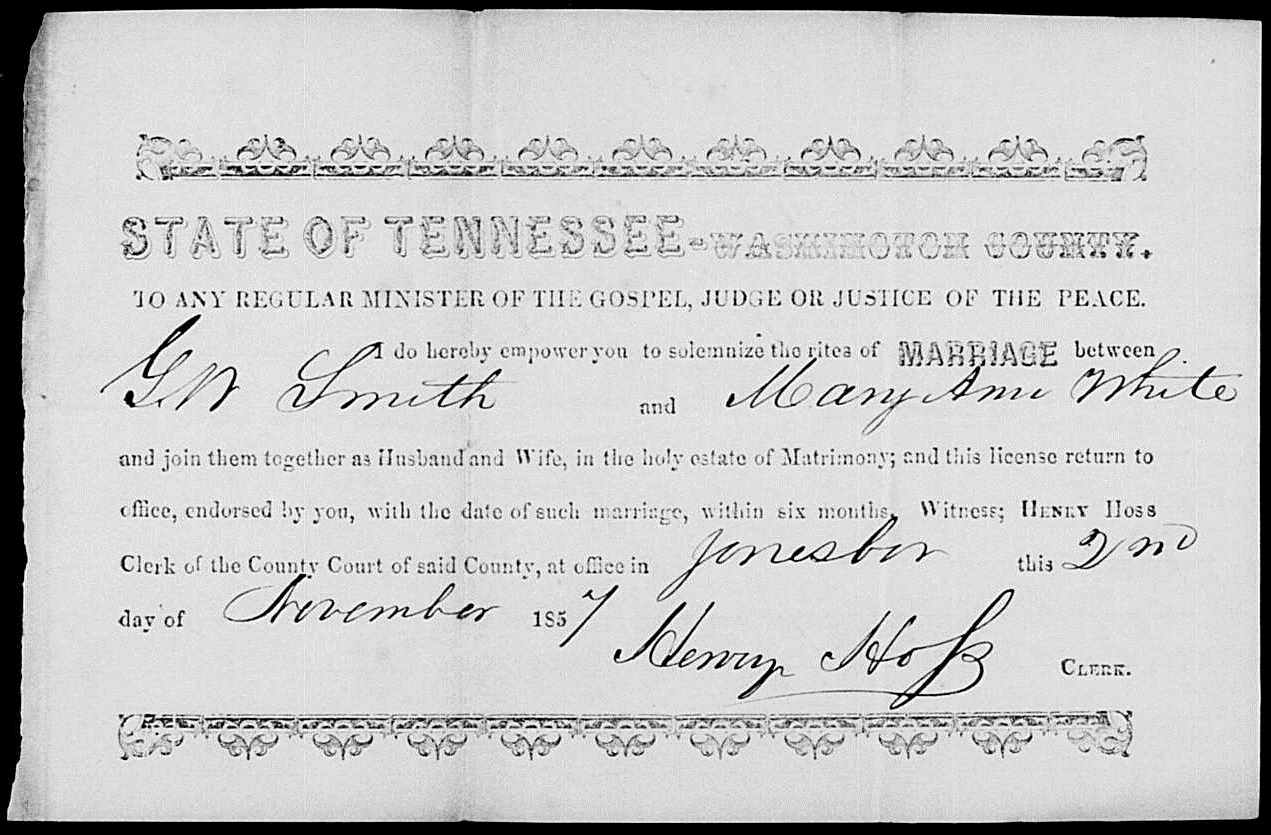 STATE OF TENNESSEE-WASHINGTON COUNTY.
TO ANY REGULAR MINISTER OF THE GOSPEL, JUDGE OR JUSTICE OF THE PEACE.
I do hereby empower you to solemnize the rites of MARRIAGE between
G W Smith and Mary Ann White
and join them together as Husband and Wife, in the holy estate of Matrimony; and this license return to
office, endorsed by you, with the date of such marriage, within six months. Witness; HENRY HOSS
Clerk of the County Court of said County, at office in Jonesbor this 2nd
day of November 1857
Henry Hoss CLERK.